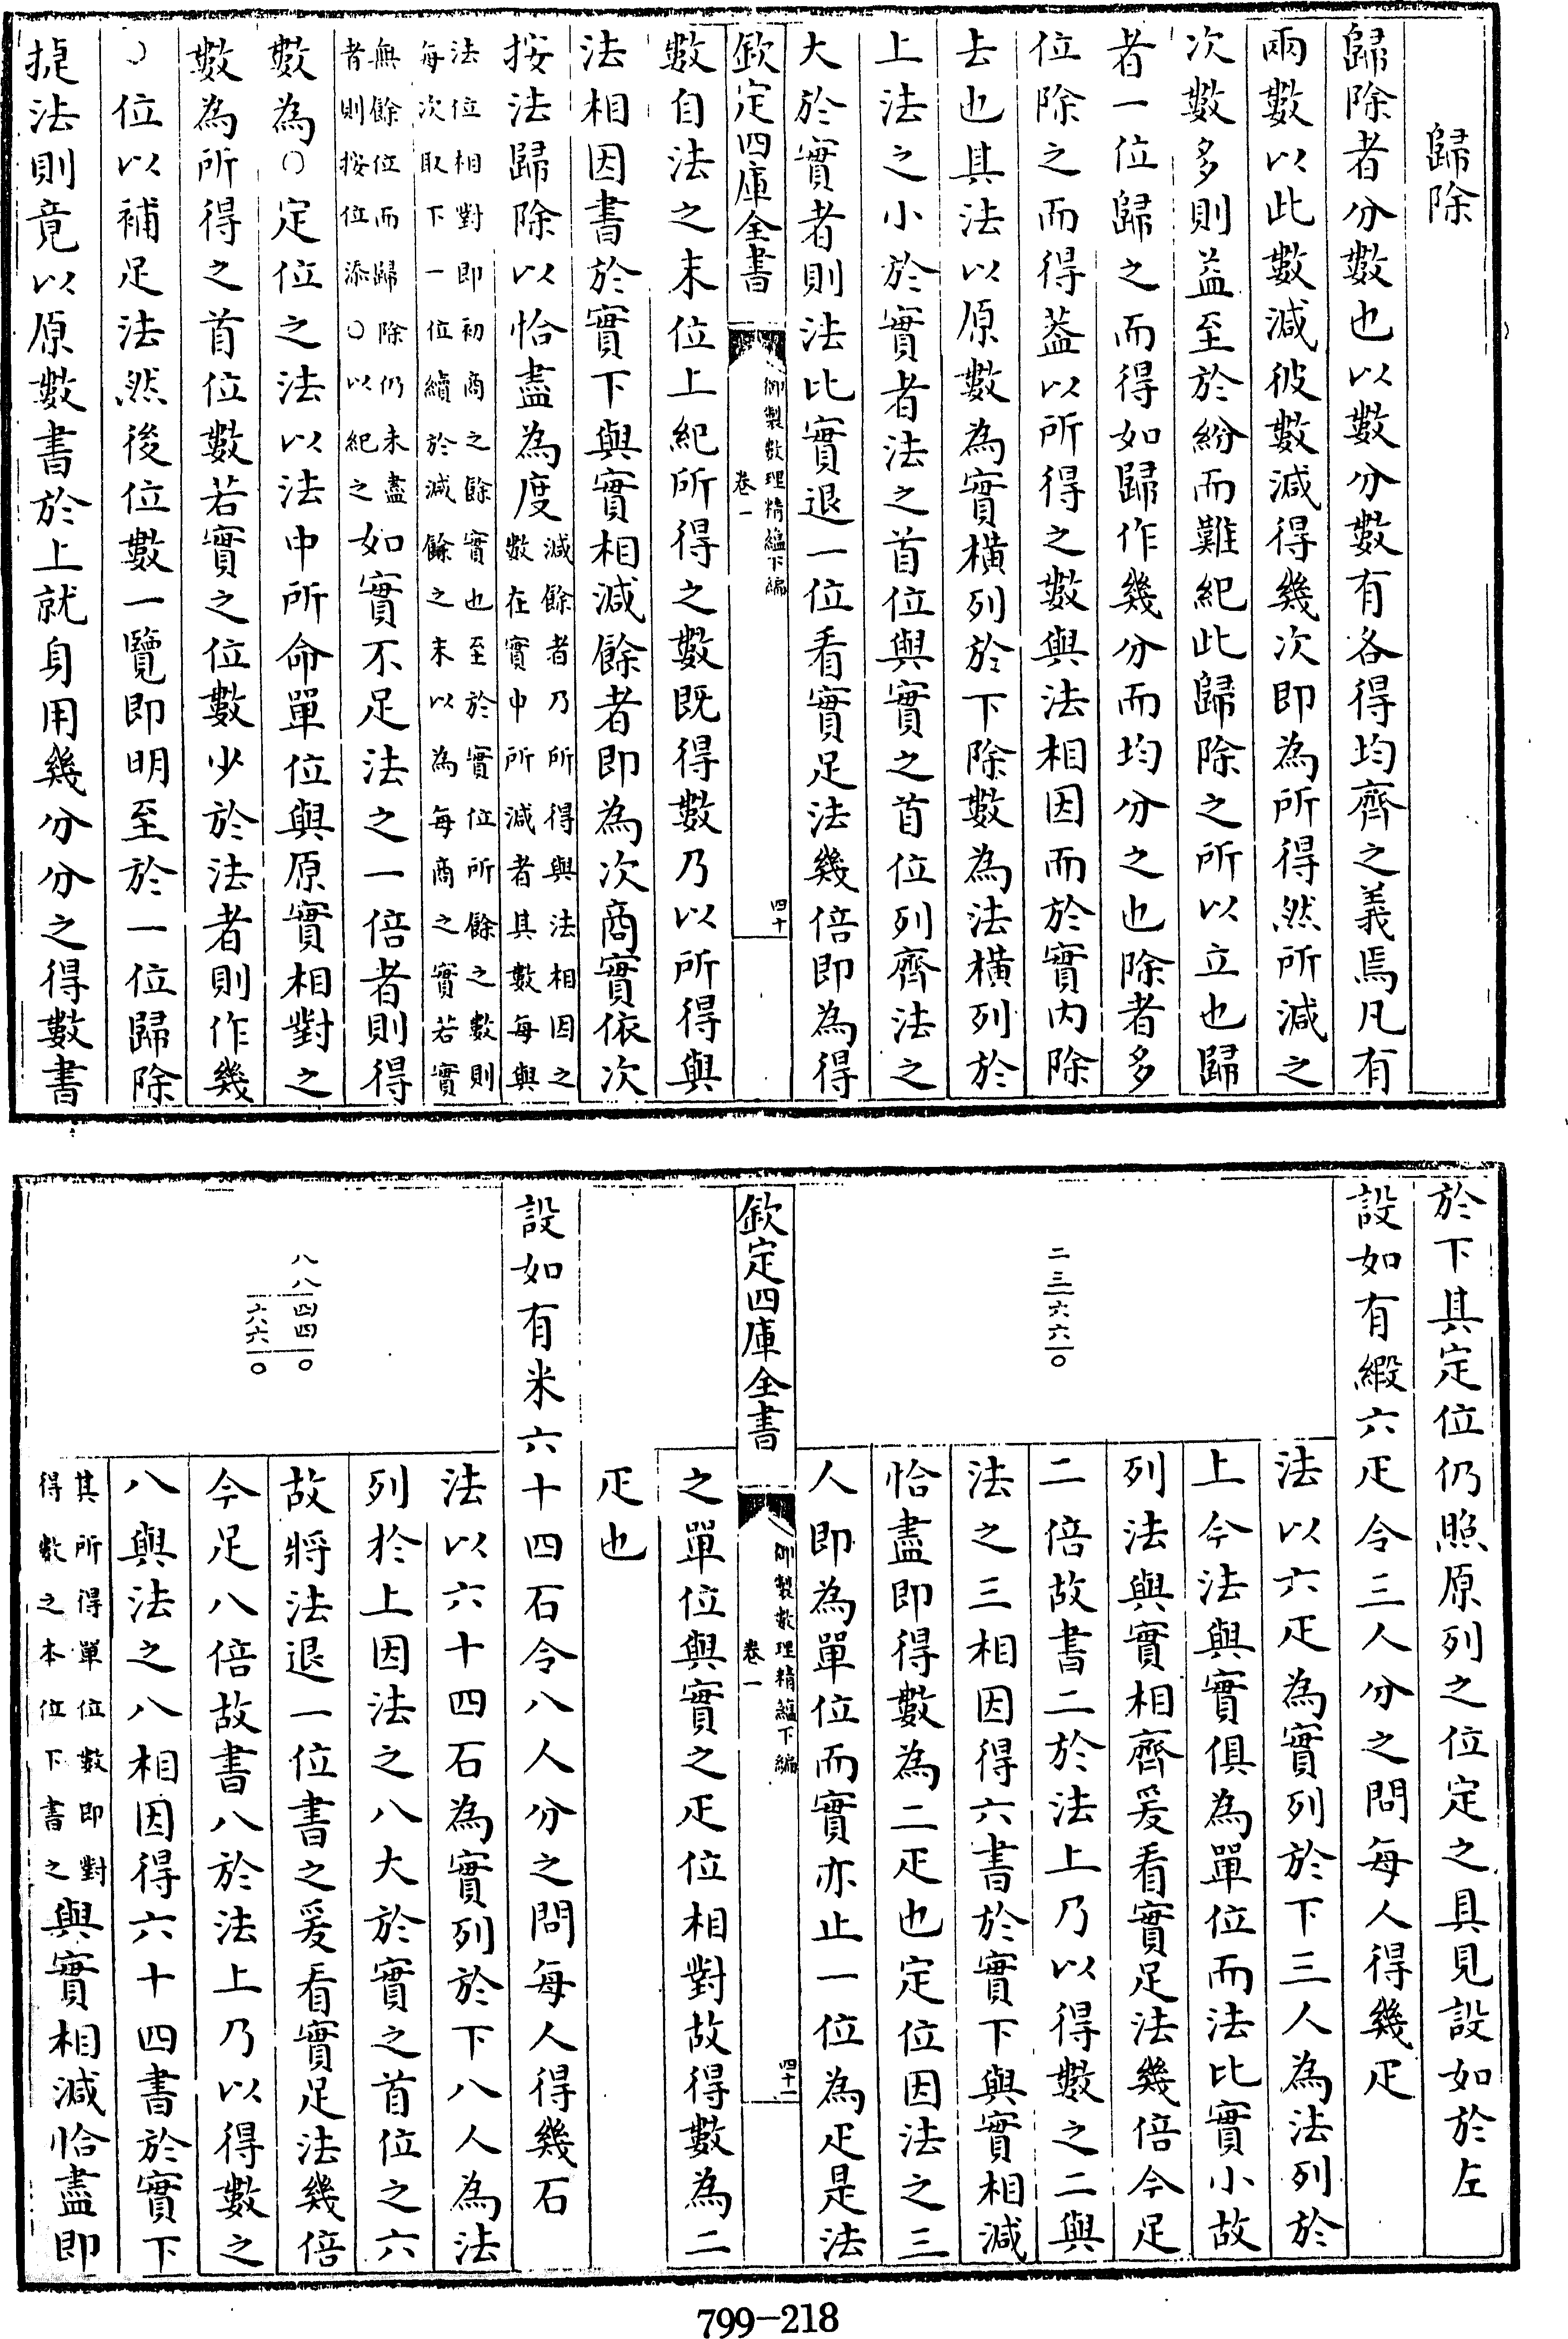 歸除
歸除者分數也以數分數有各得均齊之義焉凡有
兩數以此數減彼數減得幾次即為所得然所減之
次數多則益至於紛而難紀此歸除之所以立也歸
者一位歸之而得如歸作幾分而均分之也除者多
位除之而得蓋以所得之數與法相因而於實內除
去也其法以原數為實橫列於下除數為法橫列於
上法之小於實者法之首位與實之首位列齊法之
大於實者則法比實退一位看實足法幾倍即為得
欽定四庫全書
御製數理精蘊下編
卷一
四十
數自法之末位上紀所得之數既得數乃以所得與
法相因書於實下與實相減餘者即為次商實依次
按法歸除以恰盡為度減餘者乃所得與法相因之數在實中所減者其數每與
法位相對即初商之餘實也至於實位所餘之數則每次取下一位續於減餘之末以為每商之實若實
無餘位而歸除仍未盡者則按位添〇以紀之如實不足法之一倍者則得
數為〇定位之法以法中所命單位與原實相對之
數為所得之首位數若實之位數少於法者則作幾
〇位以補足法然後位數一覽即明至於一位歸除
捷法則竟以原數書於上就身用幾分分之得數書
於下其定位仍照原列之位定之具見設如於左
設如有緞六疋令三人分之問每人得幾疋
二
三
六
六
〇
法以六疋為實列於下三人為法列於
上今法與實俱為單位而法比實小故
列法與實相齊爰看實足法幾倍今足
二倍故書二於法上乃以得數之二與
法之三相因得六書於實下與實相減
恰盡即得數為二疋也定位因法之三
人即為單位而實亦止一位為疋是法
欽定四庫全書
御製數理精蘊下編
卷一
四十一
之單位與實之疋位相對故得數為二
疋也
設如有米六十四石令八人分之問每人得幾石
八八四四〇
六六〇
法以六十四石為實列於下八人為法
列於上因法之八大於實之首位之六
故將法退一位書之爰看實足法幾倍
今足八倍故書八於法上乃以得數之
八與法之八相因得六十四書於實下
其所得單位數即對得數之本位下書之與實相減恰盡即
799-218